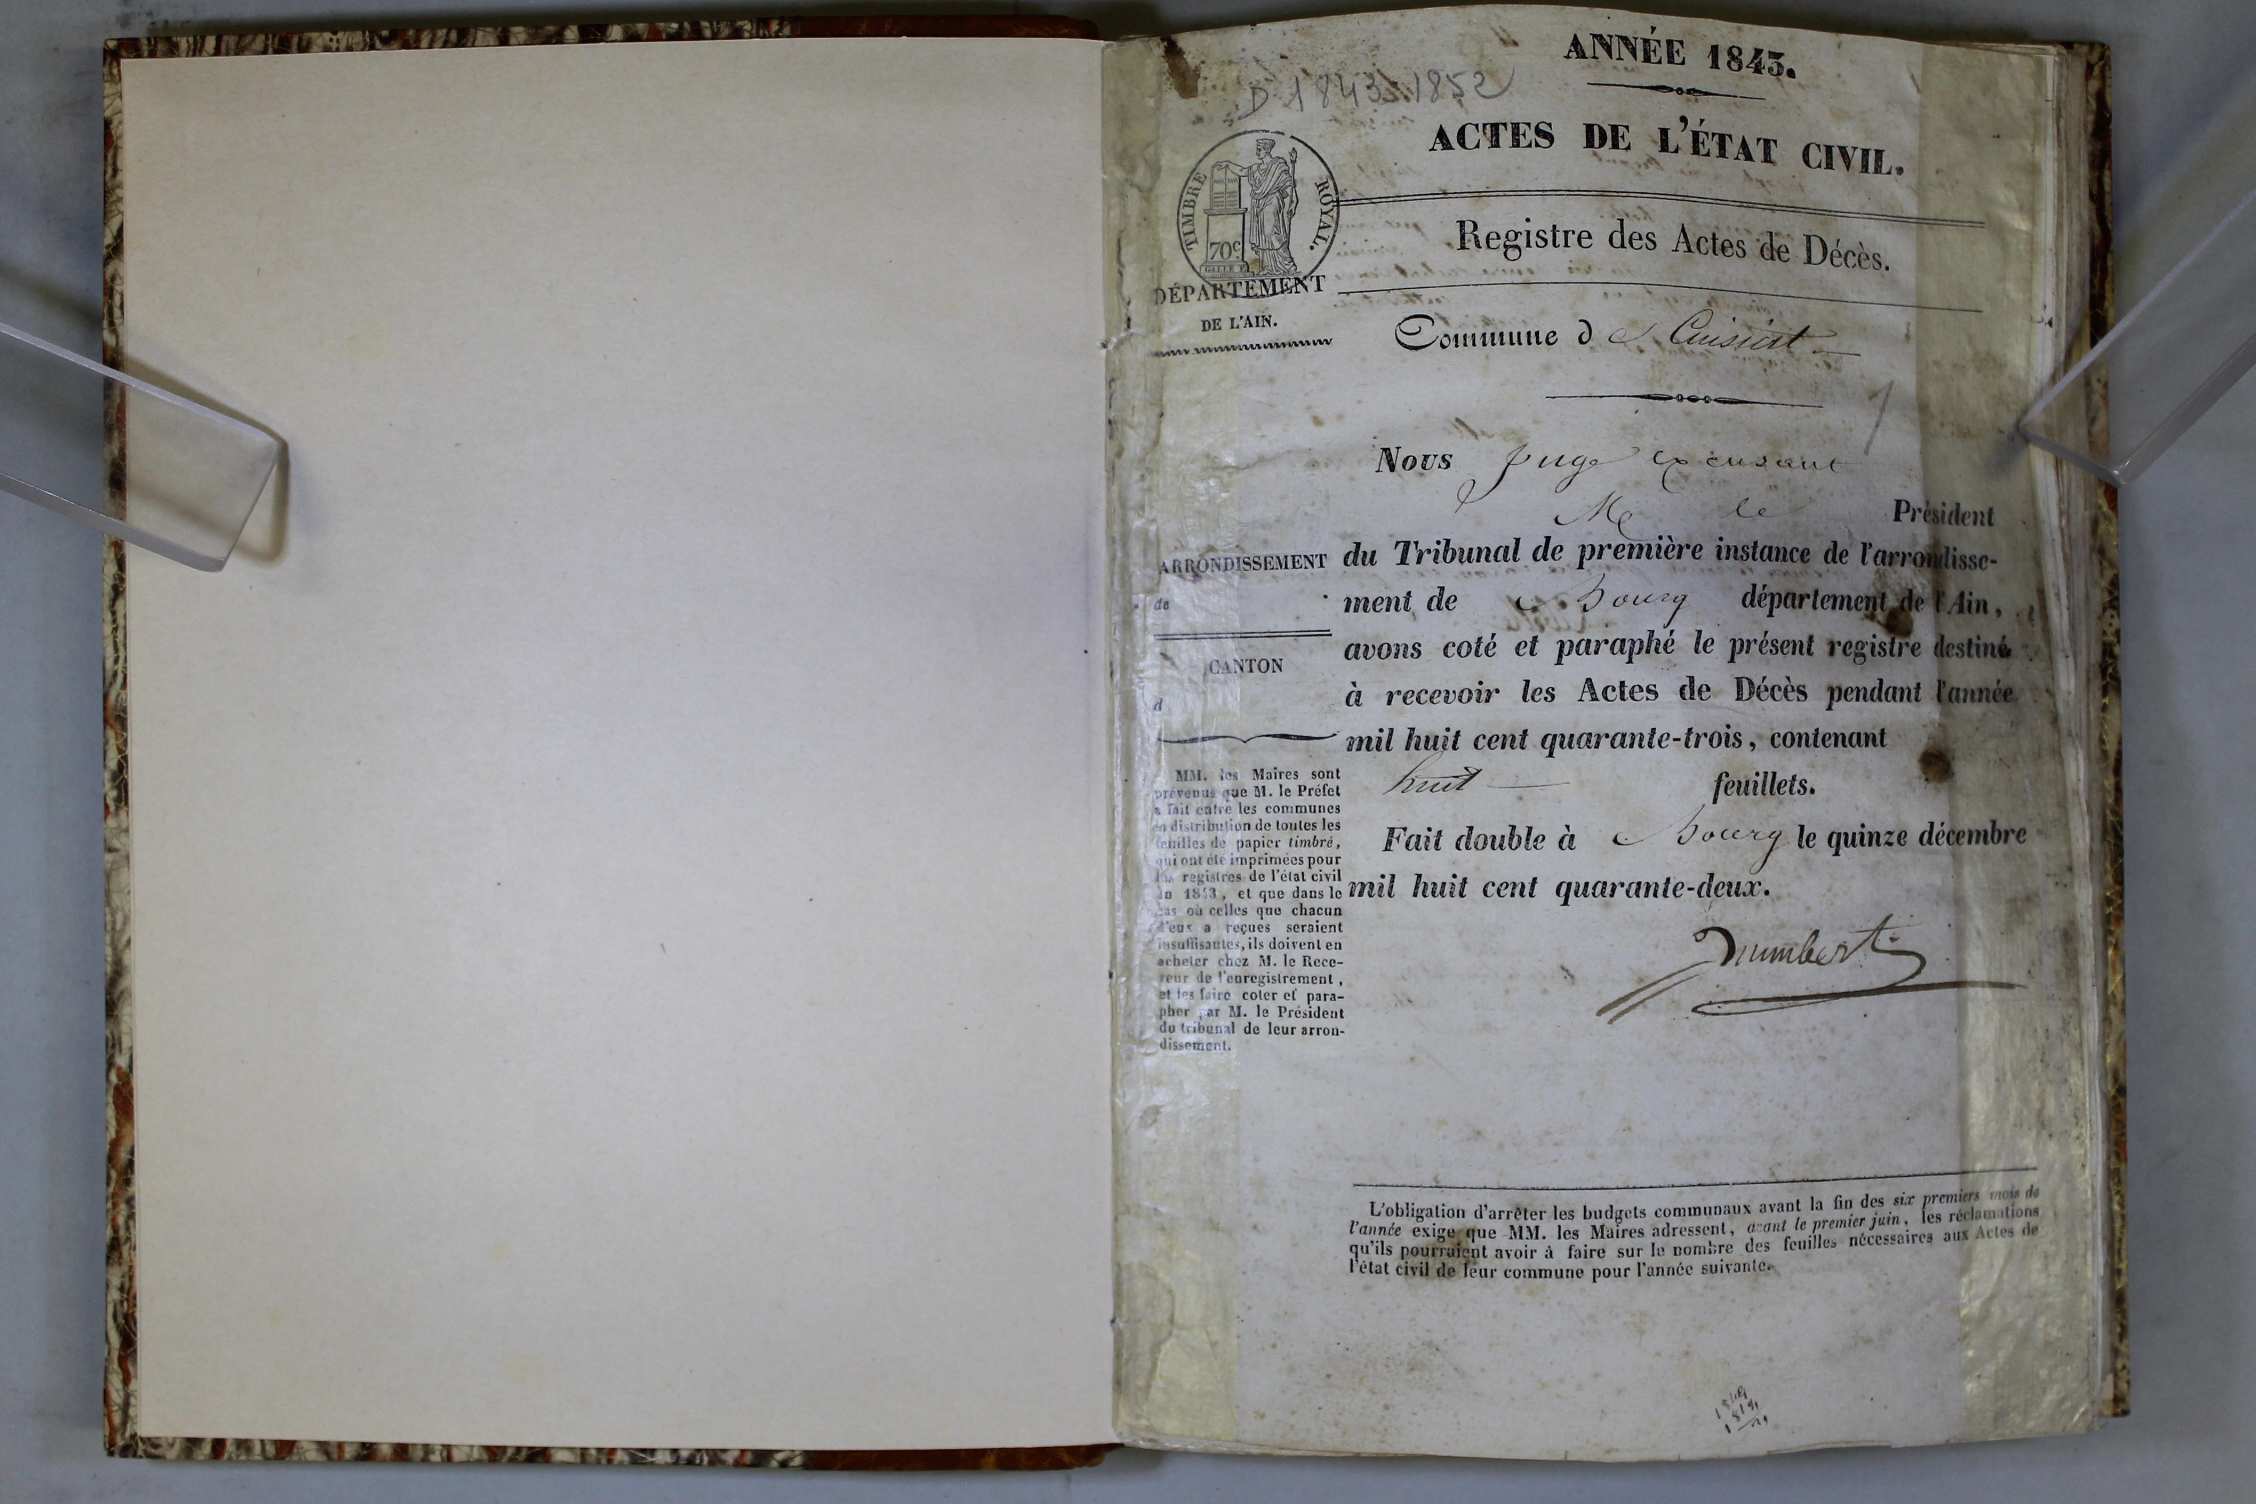 ANNÉE 1843.
D 1843. 1852
ACTES DE L'ÉTAT CIVIL.
TIMBRE ROYAL.
70c
Registre des Actes de Décès.
DÉPARTEMENT
DE L'AIN.
Commune de Cuisiat
Nous Juge excusant
Mr le Président
ARRONDISSEMENT
de
du Tribunal de première instance de l'arrondisse-
ment de Bourg département de l'Ain,
avons coté et paraphé le présent registre destiné
CANTON
d
à recevoir les Actes de Décès pendant l'année
mil huit cent quarante-trois, contenant
huit feuillets.
Fait double à Bourg le quinze décembre
mil huit cent quarante-deux.
MM. les Maires sont
prévenus que M. le Préfet
a fait entre les communes
en distribution de toutes les
feuilles de papier timbré,
qui ont été imprimées pour
les registres de l'état civil
de 1843, et que dans le
cas où celles que chacun
d'eux a reçues seraient
insuffisantes, ils doivent en
acheter chez M. le Rece-
veur de l'enregistrement,
et les faire coter et para-
pher par M. le Président
du tribunal de leur arron-
dissement.
L'obligation d'arrêter les budgets communaux avant la fin des six premiers mois de
l'année exige que MM. les Maires adressent, avant le premier juin, les réclamations
qu'ils pourraient avoir à faire sur le nombre des feuilles nécessaires aux Actes de
l'état civil de leur commune pour l'année suivante.